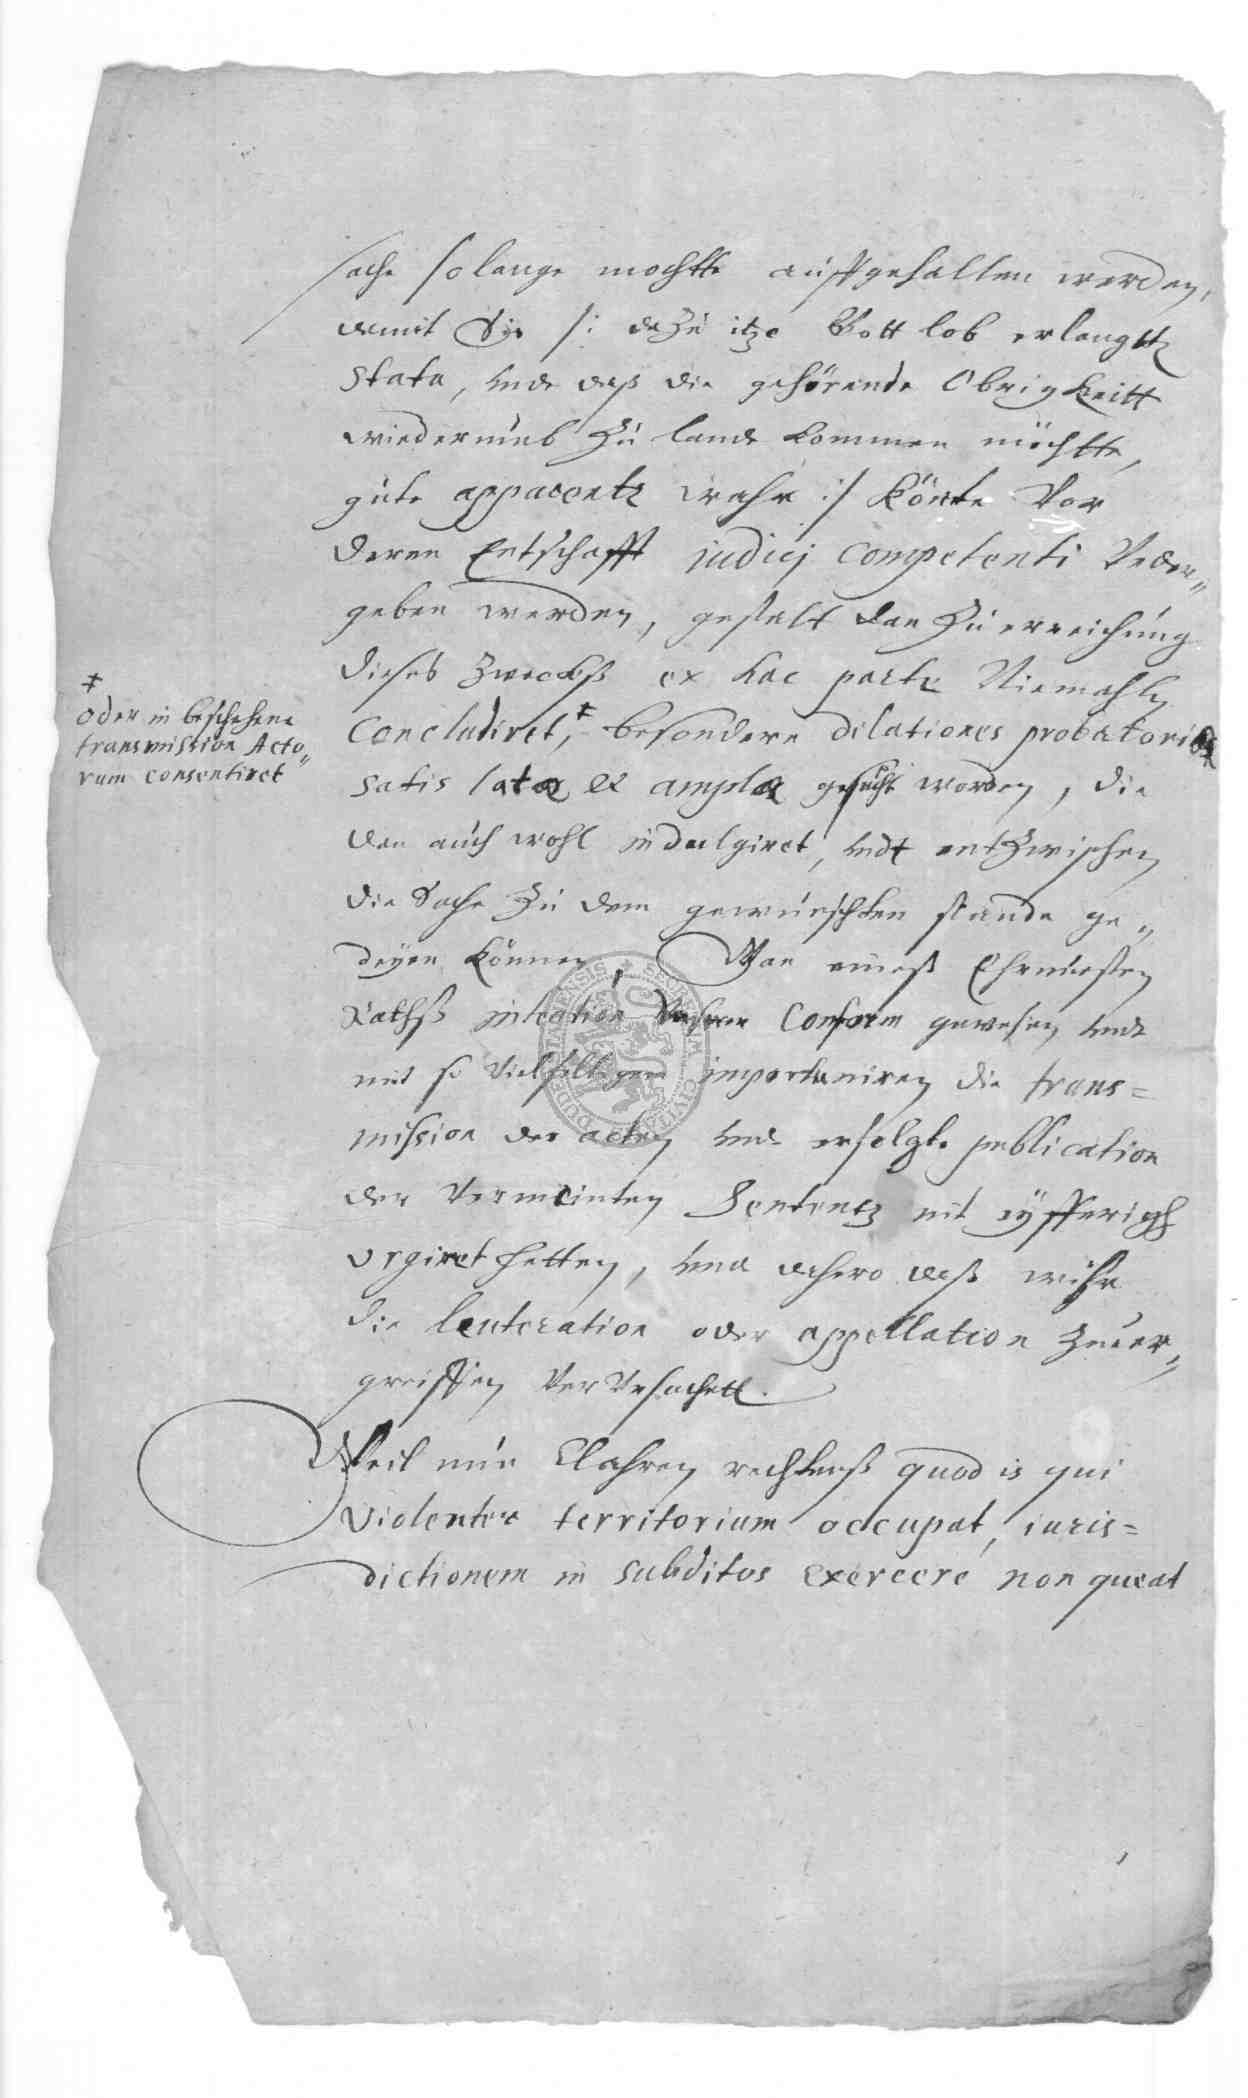 sache so lange mochtte auffgehalten werden,
damit Sie /: dazu itzo Gott lob erlangtz
stata, undt daß die gehörende Obrigkeitt
wiederumb zu lande kommen möchtte,
gute apparentz wahr :/ könte vor
deren judicj competenti
geben werden, gestalt dan zu erreichung
dieses zweckß ex hac parte Niemahls
concludiret,‡ besondern dilationes probatoriæ
‡
oder in beschehene
transmission Acto„
rum consentiret
satis latæ et amplæ gesucht worden, die
dan auch wohl indulgiret, undt entzwischen
die Sache zu dem gewünschten stande ge„
deyen können, Wan eineß Ehrnvesten
Rathß intention conform gewesen undt
mit so vielfeltigen importuniren die trans=
mission der acten undt erfolgte publication
der vermeinten Sententz nit eyfferigh
urgiret hetten, und dahero daß wihr
die leuteration oder appellation zu er„
greiffen verursachett.
Weil nun Clahren rechtenß quod is qui
violenter territorium occupat, iuris=
dictionem in subditos exercere non queat
SECRETUM CIVITATIS